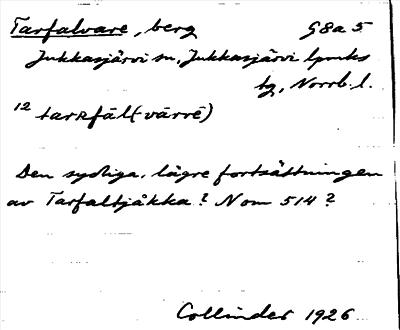 Tarfalvare, berg G8a5
Jukkasjärvi sn, Jukkasjärvi lpmks
tg, Norrb. l.
12 tarRfāl(vārrē)
Den sydliga, lägre fortsättningen
av Tarfaltjåkka? Nom 514?
Collinder 1926